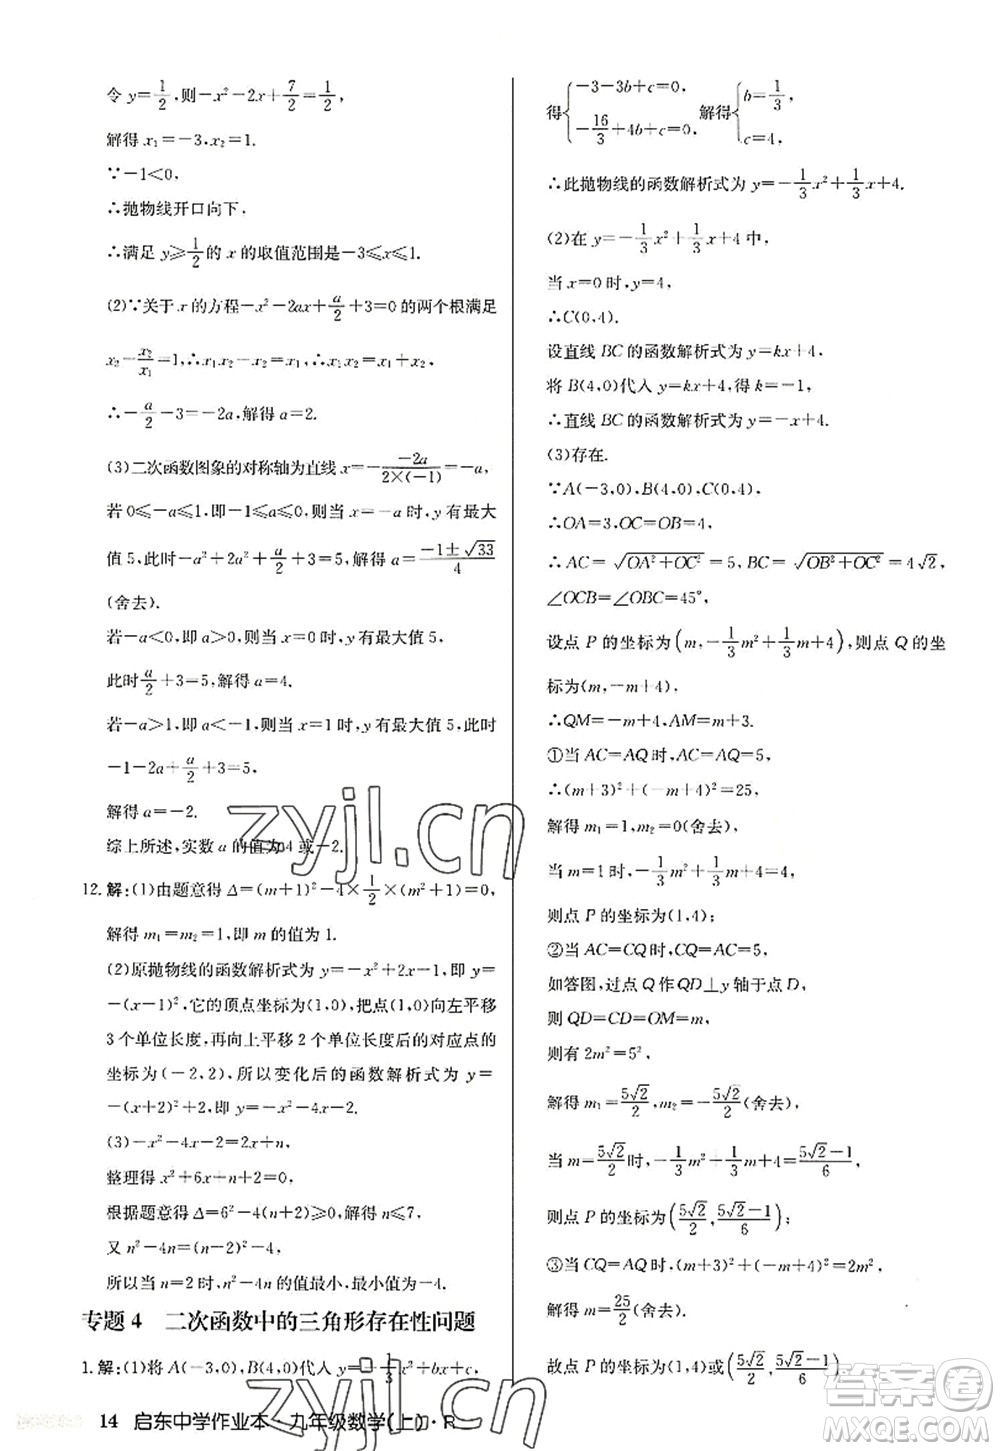 令 y=1/2,则-x²-2x+7/2=1/2,
解得 x₁=-3,x₂=1.
∵-1<0,
∴抛物线开口向下,
∴满足 y≥1/2的 x 的取值范围是-3≤x≤1.
(2)∵关于 x 的方程-x²-2ax+a/2+3=0 的两个根满足
x₂-x₂/x₁=1,∴x₁x₂-x₂=x₁,∴x₁x₂=x₁+x₂,
∴-a/2-3=-2a,解得 a=2.
(3)二次函数图象的对称轴为直线 x=--2a/2×(-1)=-a,
若 0≤-a≤1,即-1≤a≤0,则当 x=-a 时,y 有最大
值 5,此时-a²+2a²+a/2+3=5,解得 a=-1±√33/4
(舍去).
若-a<0,即 a>0,则当 x=0 时,y 有最大值 5,
此时a/2+3=5,解得 a=4.
若-a>1,即 a<-1,则当 x=1 时,y 有最大值 5,此时
-1-2a+a/2+3=5,
解得 a=-2.
综上所述,实数 a 的值为 4 或-2.
12.解:(1)由题意得 Δ=(m+1)²-4×1/2×(m²+1)=0,
解得 m₁=m₂=1,即 m 的值为 1.
(2)原抛物线的函数解析式为 y=-x²+2x-1,即 y=
-(x-1)²,它的顶点坐标为(1,0),把点(1,0)向左平移
3 个单位长度,再向上平移 2 个单位长度后的对应点的
坐标为(-2,2),所以变化后的函数解析式为 y=
-(x+2)²+2,即 y=-x²-4x-2.
(3)-x²-4x-2=2x+n,
整理得 x²+6x+n+2=0,
根据题意得 Δ=6²-4(n+2)≥0,解得 n≤7,
又 n²-4n=(n-2)²-4,
所以当 n=2 时,n²-4n 的值最小,最小值为-4.
专题 4 二次函数中的三角形存在性问题
1.解:(1)将 A(-3,0),B(4,0)代入 y=-1/3x²+bx+c,
得{-3-3b+c=0, -16/3+4b+c=0, 解得{b=1/3, c=4,
∴此抛物线的函数解析式为 y=-1/3x²+1/3x+4.
(2)在 y=-1/3x²+1/3x+4 中,
当 x=0 时,y=4,
∴C(0,4).
设直线 BC 的函数解析式为 y=kx+4,
将 B(4,0)代入 y=kx+4,得 k=-1,
∴直线 BC 的函数解析式为 y=-x+4.
(3)存在.
∵A(-3,0),B(4,0),C(0,4),
∴OA=3,OC=OB=4,
∴AC=√OA²+OC²=5,BC=√OB²+OC²=4√2,
∠OCB=∠OBC=45°,
设点 P 的坐标为(m,-1/3m²+1/3m+4),则点 Q 的坐
标为(m,-m+4),
∴QM=-m+4,AM=m+3.
①当 AC=AQ 时,AC=AQ=5,
∴(m+3)²+(-m+4)²=25,
解得 m₁=1,m₂=0(舍去),
当 m=1 时,-1/3m²+1/3m+4=4,
则点 P 的坐标为(1,4);
②当 AC=CQ 时,CQ=5,
如答图,过点 Q 作 QD⊥y 轴于点 D,
则 QD=CD=OM=m,
则有 2m²=5²,
解得 m₁=5√2/2,m₂=-5√2/2(舍去),
当 m=5√2/2时,-1/3m²+1/3m+4=5√2-1/6,
则点 P 的坐标为(5√2/2,5√2-1/6);
③当 CQ=AQ 时,(m+3)²+(-m+4)²=2m²,
解得 m=25/2(舍去).
故点 P 的坐标为(1,4)或(5√2/2,5√2-1/6).
14 启东中学作业本·九年级数学(上)·R
zyjl.cn
zyjl.cn
答案圈
MXQE.COM